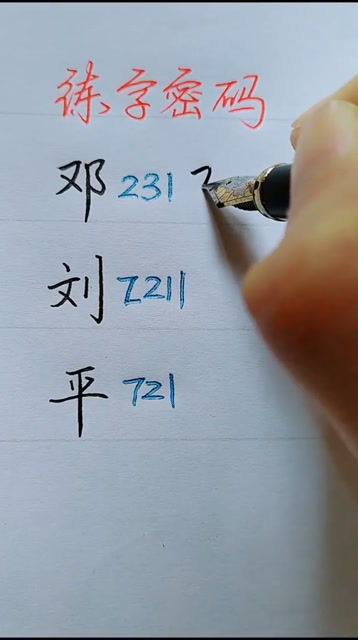 练字密码
邓 231
刘 7211
平 721